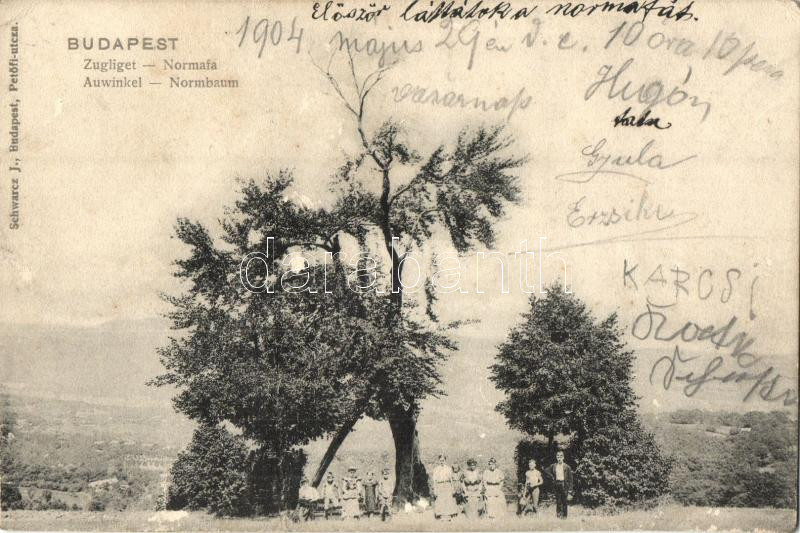 Először láttátok a normafát.
BUDAPEST
Zugliget — Normafa
Auwinkel — Normbaum
1904 május 29én d. e. 10 óra 10 perc
vasárnap
Hugón
Gyula
Erzsike
KARCSI
Schwarcz J., Budapest, Petőfi-utcza.
darabanth